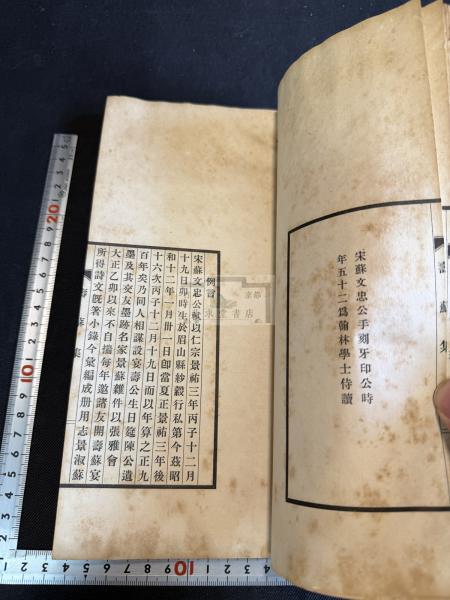 宋蘇文忠公手刻牙印公時
年五十二爲翰林學士侍讀
壽蘇集
例言
宋蘇文忠公軾以仁宗景祐三年丙子十二月
十九日卯時生於眉山縣紗縠行私第今茲昭
和十二年一月卅一日即當夏正景祐三年後
十六次丙子十二月十九日而以年算之正九
百年矣乃同人相謀設宴壽公生日筵陳公遺
墨及其交友墨跡名家景蘇雜件以張雅會
大正乙卯以來不自揣每年邀諸友開壽蘇宴
所得詩文既著小錄今彙編成册用志景淑蘇
壽蘇集
京都
永堂書店